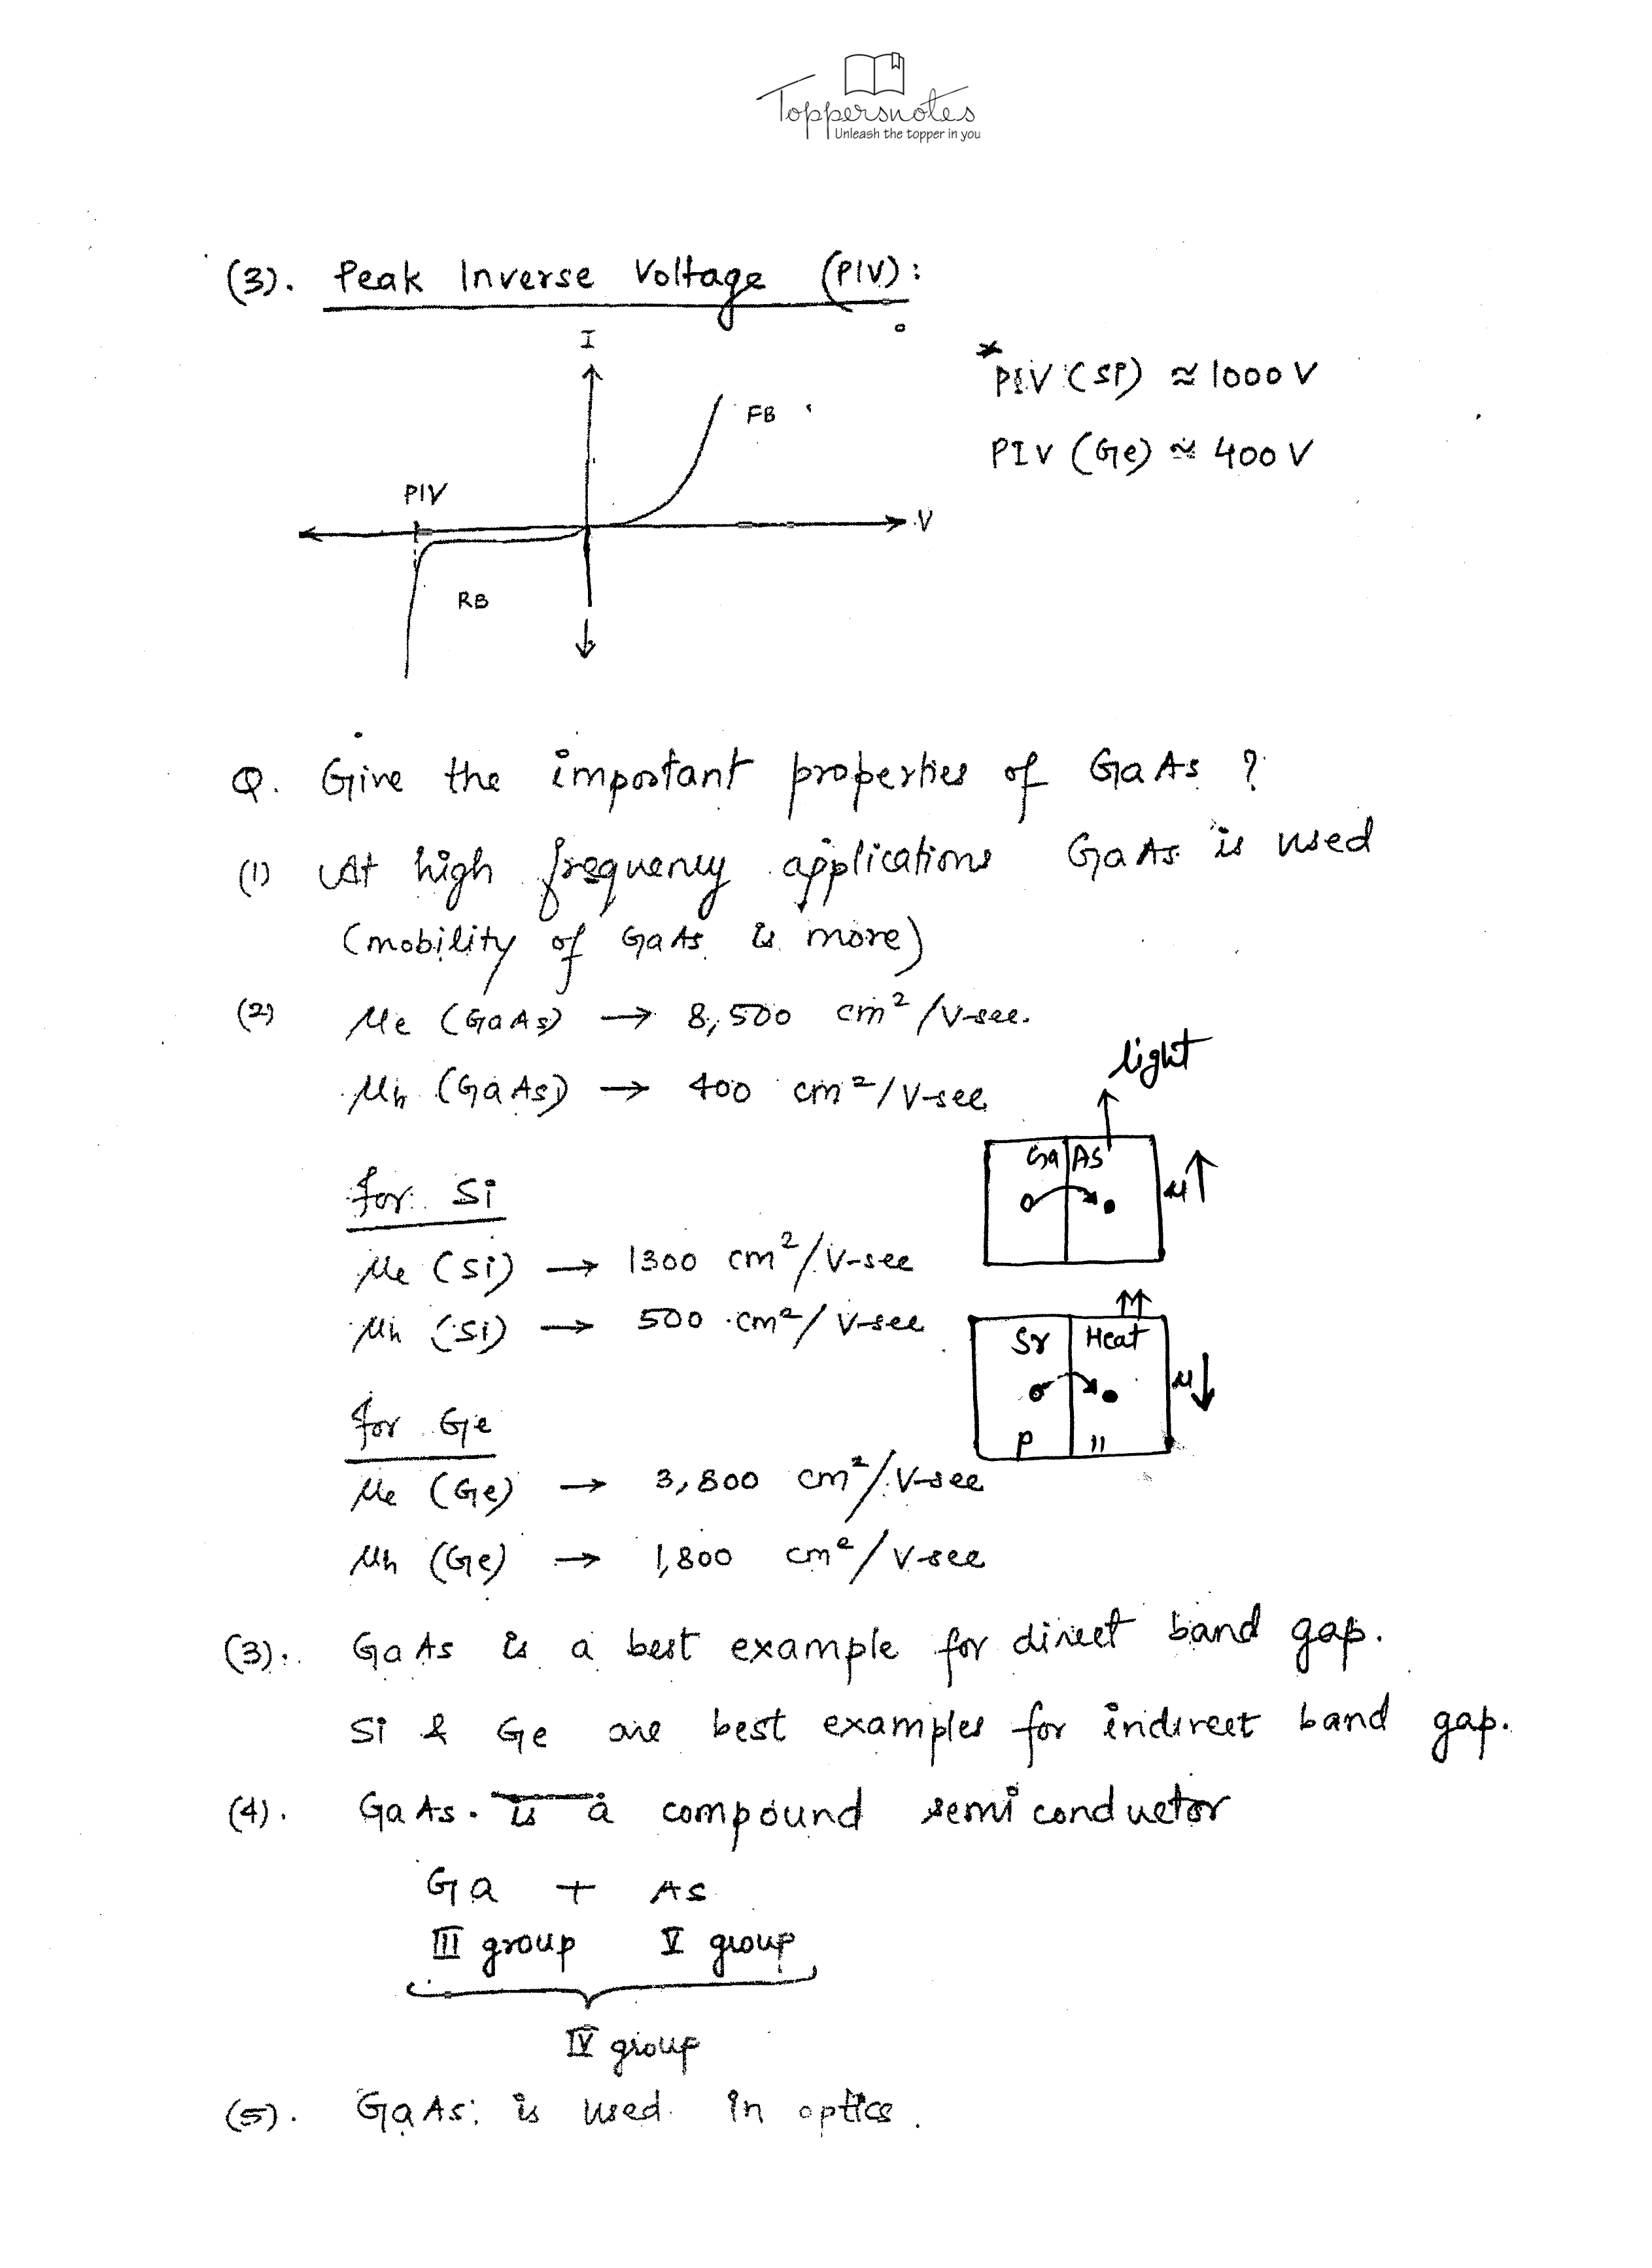 Toppersnotes
Unleash the topper in you
(3). Peak Inverse Voltage (PIV):
I
*PIV (Si) ≈ 1000 V
FB
PIV (Ge) ≈ 400 V
PIV
V
RB
Q. Give the important properties of GaAs ?
(1) At high frequency applications GaAs is used
(mobility of GaAs is more)
(2) μe (GaAs) → 8,500 cm²/V-sec.
light
μh (GaAs) → 400 cm²/V-sec
Ga As
μ↑
for Si
μe (Si) → 1300 cm²/V-sec
μh (Si) → 500 cm²/V-sec
Heat
μ↓
P n
for Ge
μe (Ge) → 3,800 cm²/V-sec
μh (Ge) → 1,800 cm²/V-sec
(3). GaAs is a best example for direct band gap.
Si & Ge are best examples for indirect band gap.
(4). GaAs is a compound semiconductor
Ga + As
III group V group
IV group
(5). GaAs is used in optics.